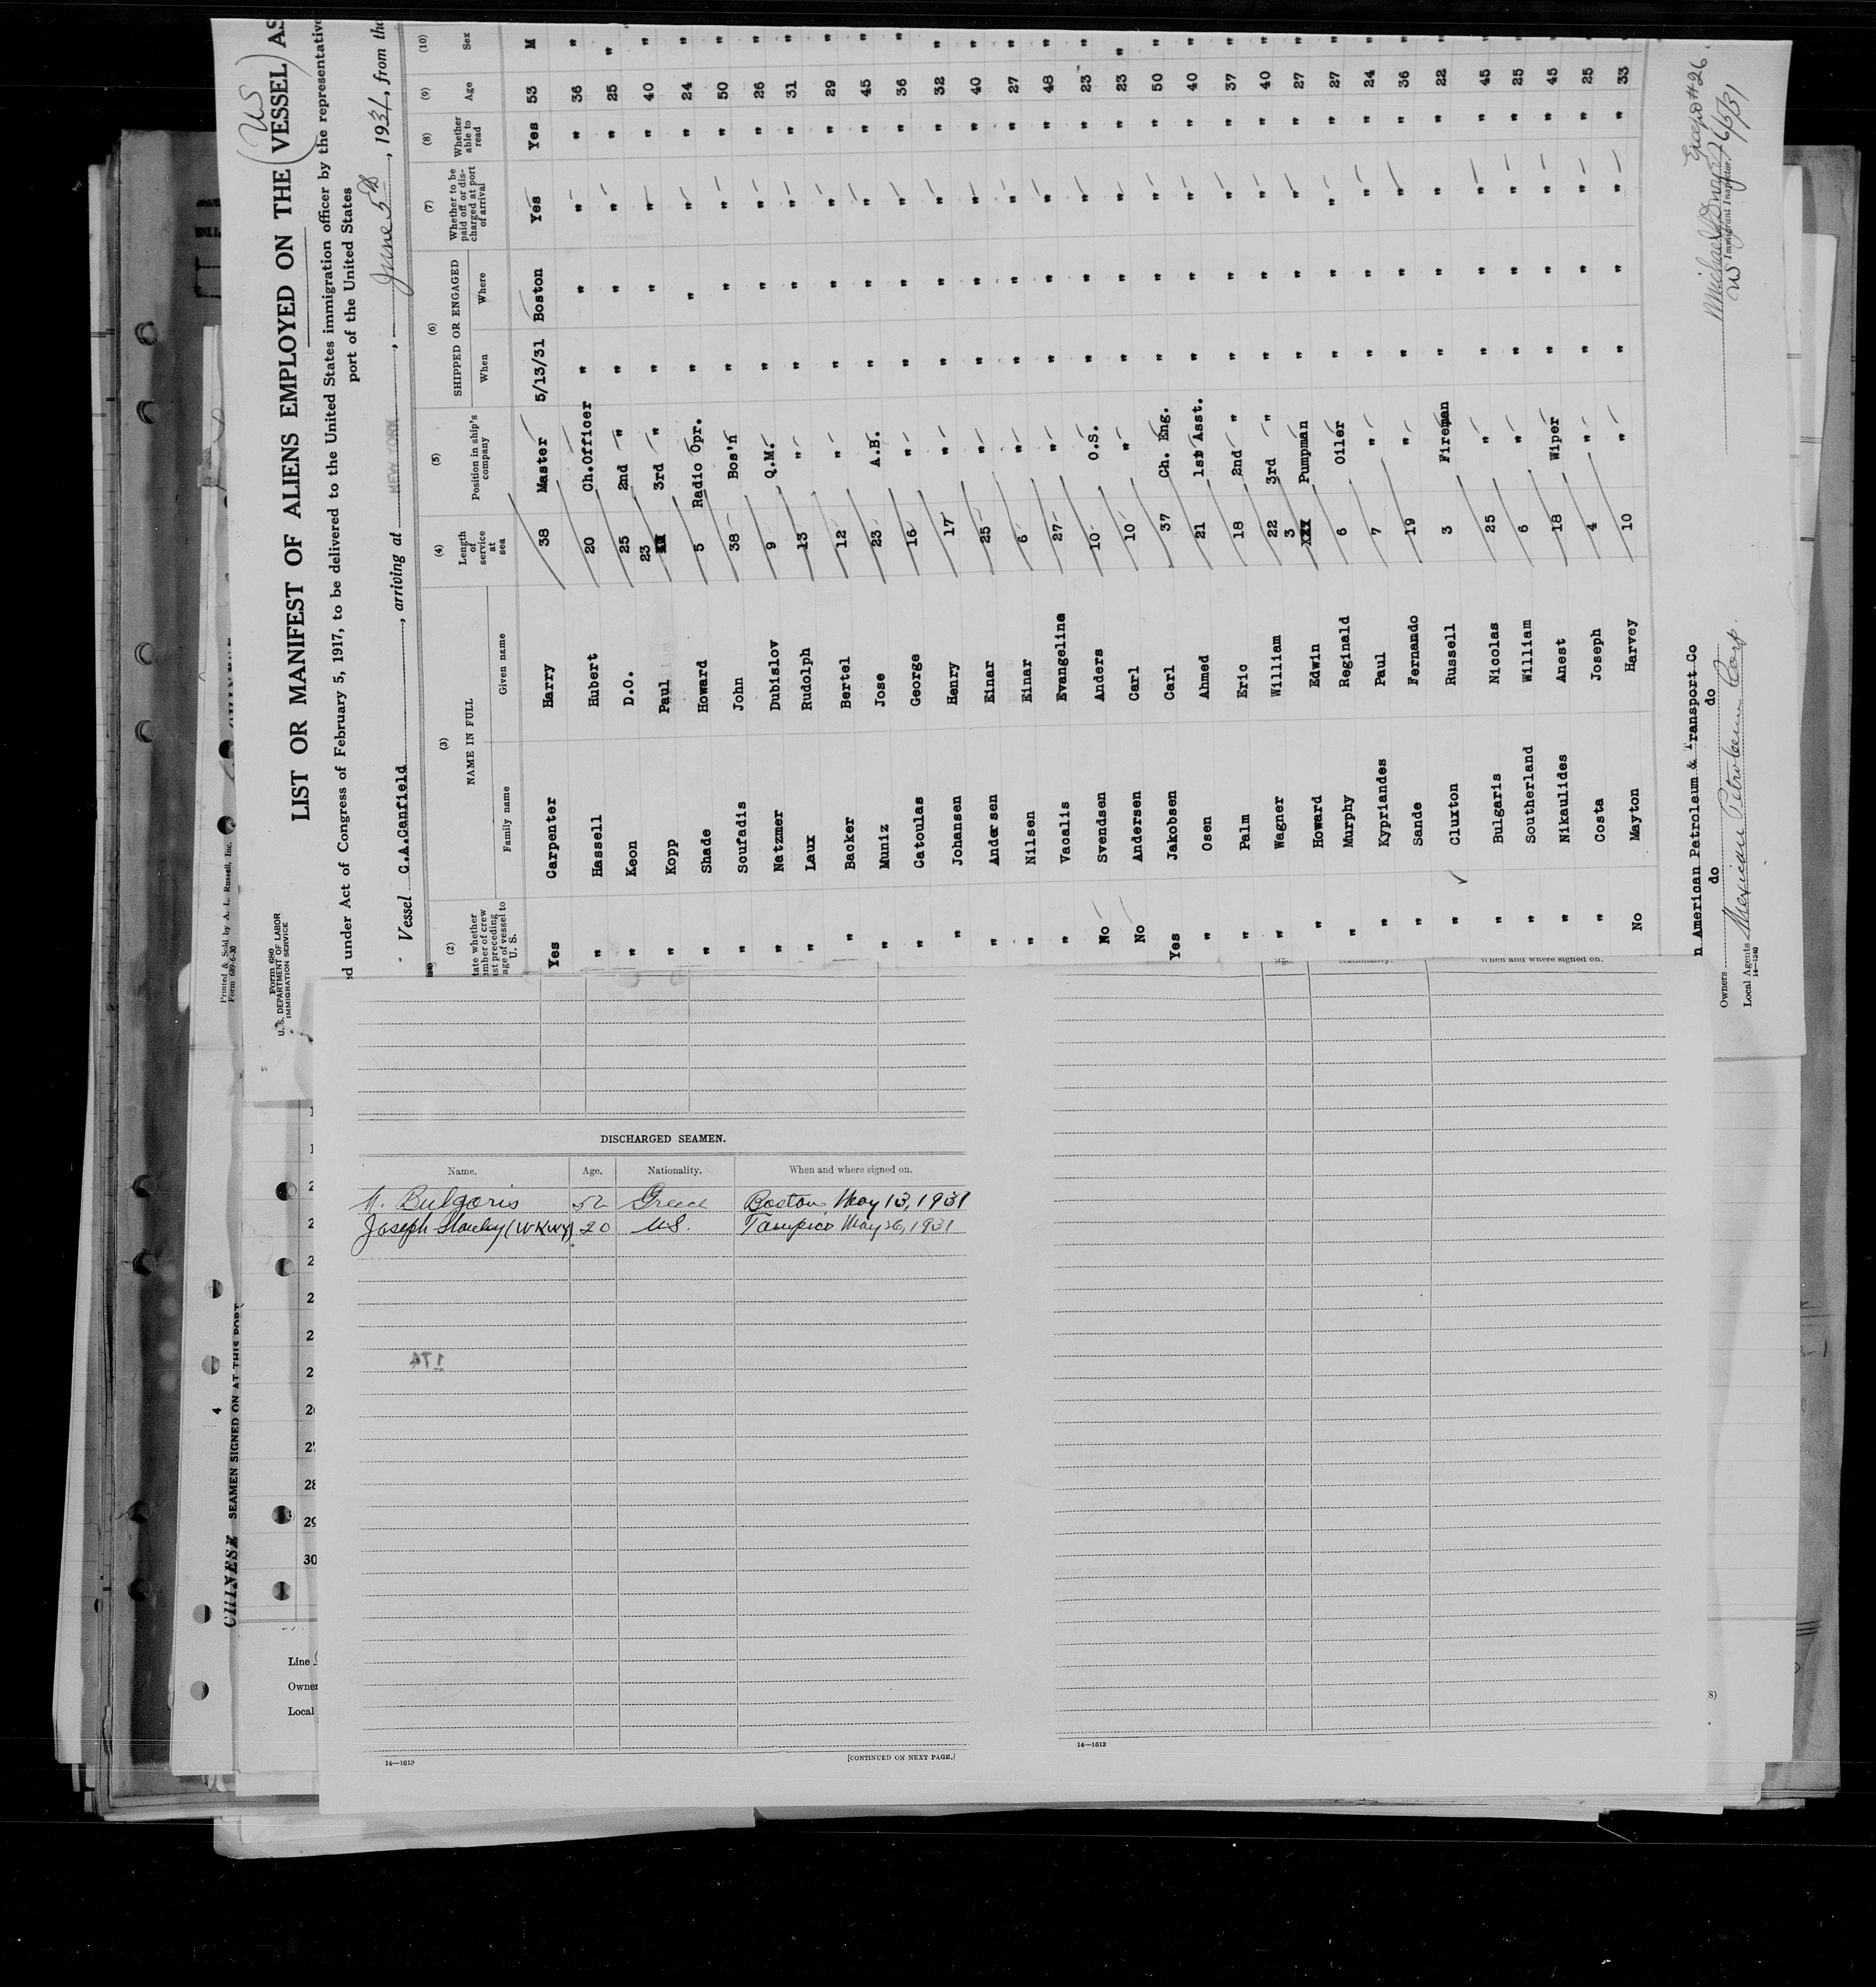 Printed & Sold by A. L. Russell, Inc.
Form 689-6-30
Form 689
U. S. DEPARTMENT OF LABOR
IMMIGRATION SERVICE
US
LIST OR MANIFEST OF ALIENS EMPLOYED ON THE (VESSEL) AS
ed under Act of Congress of February 5, 1917, to be delivered to the United States immigration officer by the representative
port of the United States
Vessel C.A.Canfield, arriving at NEW YORK, June 5th, 1931, from the
(2) (3) (4) (5) (6) (7) (8) (9) (10)
NAME IN FULL SHIPPED OR ENGAGED
Family name Given name Length of service at sea Position in ship's company When Where Whether to be paid off or discharged at port of arrival Whether able to read Age Sex
Yes Carpenter Harry 38 Master 5/13/31 Boston Yes Yes 53 M
" Hassell Hubert 20 Ch.Officer " " " " 36 "
" Keon D.O. 25 2nd " " " " " 25 "
" Kopp Paul 23 3rd " " " " " 40 "
" Shade Howard 5 Radio Opr. " " " " 24 "
" Soufadis John 38 Bos'n " " " " 50 "
" Natzmer Dubislov 9 Q.M. " " " " 26 "
" Laux Rudolph 13 " " " " " 31 "
" Backer Bertel 12 " " " " " 29 "
" Muniz Jose 23 A.B. " " " " 45 "
" Catoulas George 16 " " " " " 36 "
" Johansen Henry 17 " " " " " 32 "
" Andersen Einar 25 " " " " " 40 "
" Nilsen Einar 6 " " " " " 27 "
" Vacalis Evangelina 27 " " " " " 48 "
No Svendsen Anders 10 O.S. " " " " 23 "
No Andersen Carl 10 " " " " " 23 "
Yes Jakobsen Carl 37 Ch. Eng. " " " " 50 "
" Osen Ahmed 21 1st Asst. " " " " 40 "
" Palm Eric 18 2nd " " " " " 37 "
" Wagner William 22 3rd " " " " " 40 "
" Howard Edwin 3 Pumpman " " " " 27 "
" Murphy Reginald 6 Oiler " " " " 27 "
" Kypriandes Paul 7 " " " " " 24 "
" Sande Fernando 19 " " " " " 36 "
" Cluxton Russell 3 Fireman " " " " 22 "
" Bulgaris Nicolas 25 " " " " " 45 "
" Southerland William 6 " " " " " 25 "
" Nikaulides Anest 18 Wiper " " " " 45 "
" Costa Joseph 4 " " " " " 25 "
No Mayton Harvey 10 " " " " " 33 "
n American Petroleum & Transport Co
do do
Owners
Local Agents Mexican Petroleum Corp.
14—1240
Except #26.
6/5/31
Immigrant Inspector.
When and where signed on.
DISCHARGED SEAMEN.
Name. Age. Nationality. When and where signed on.
N. Bulgaris 52 Greece Boston, May 13, 1931
Joseph Stanley (WKWY) 20 US. Tampico May 26, 1931
174
14—1613
[CONTINUED ON NEXT PAGE.]
14—1613
CHINESE SEAMEN SIGNED ON AT THIS PORT
4
28
29
30
Line
Owner
Local